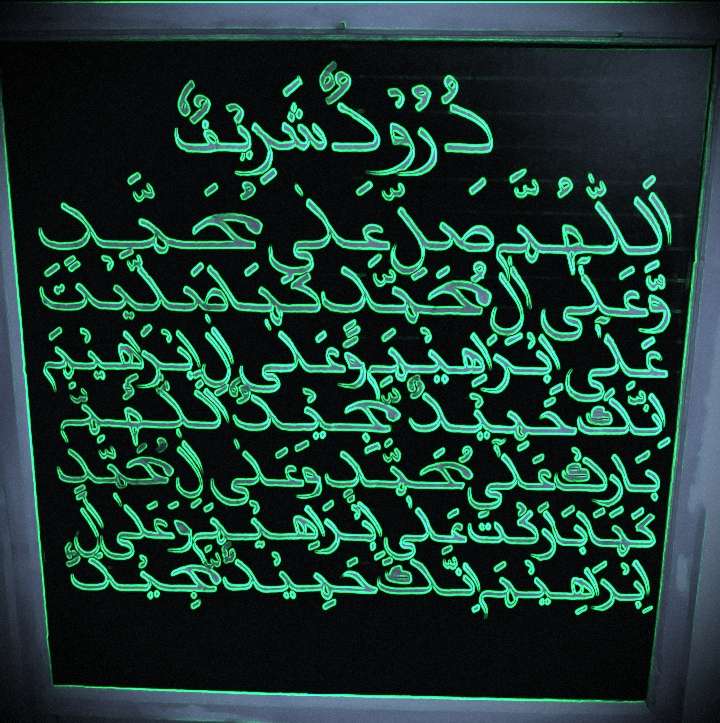 دُرُوْدٌ شَرِيْفٌ
اَللّٰهُمَّ صَلِّ عَلٰى مُحَمَّدٍ
وَّعَلٰى اٰلِ مُحَمَّدٍ كَمَا صَلَّيْتَ
عَلٰى اِبْرَاهِيْمَ وَعَلٰى اٰلِ اِبْرَاهِيْمَ
اِنَّكَ حَمِيْدٌ مَّجِيْدٌ اَللّٰهُمَّ
بَارِكْ عَلٰى مُحَمَّدٍ وَعَلٰى اٰلِ مُحَمَّدٍ
كَمَا بَارَكْتَ عَلٰى اِبْرَاهِيْمَ وَعَلٰى اٰلِ
اِبْرَاهِيْمَ اِنَّكَ حَمِيْدٌ مَّجِيْدٌ